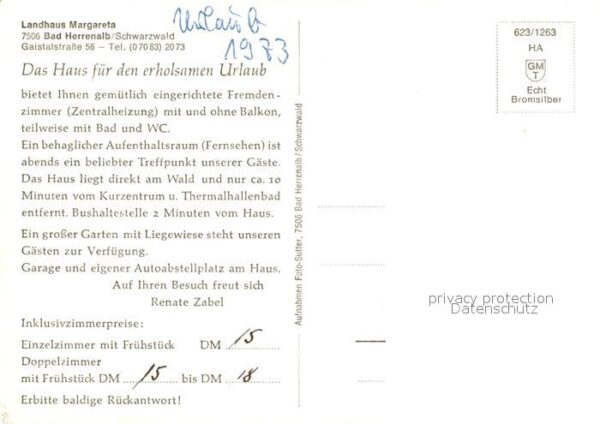 Landhaus Margareta
7506 Bad Herrenalb/Schwarzwald
Gaistalstraße 56 – Tel. (07083) 2073
Urlaub
1973
Das Haus für den erholsamen Urlaub
bietet Ihnen gemütlich eingerichtete Fremden-
zimmer (Zentralheizung) mit und ohne Balkon,
teilweise mit Bad und WC.
Ein behaglicher Aufenthaltsraum (Fernsehen) ist
abends ein beliebter Treffpunkt unserer Gäste.
Das Haus liegt direkt am Wald und nur ca. 10
Minuten vom Kurzentrum u. Thermalhallenbad
entfernt. Bushaltestelle 2 Minuten vom Haus.
Ein großer Garten mit Liegewiese steht unseren
Gästen zur Verfügung.
Garage und eigener Autoabstellplatz am Haus.
Auf Ihren Besuch freut sich
Renate Zabel
Inklusivzimmerpreise:
Einzelzimmer mit Frühstück DM 15
Doppelzimmer
mit Frühstück DM 15 bis DM 18
Erbitte baldige Rückantwort!
Aufnahmen Foto-Sutter, 7506 Bad Herrenalb/Schwarzwald
623/1263
HA
GM
T
Echt
Bromsilber
privacy protection
Datenschutz